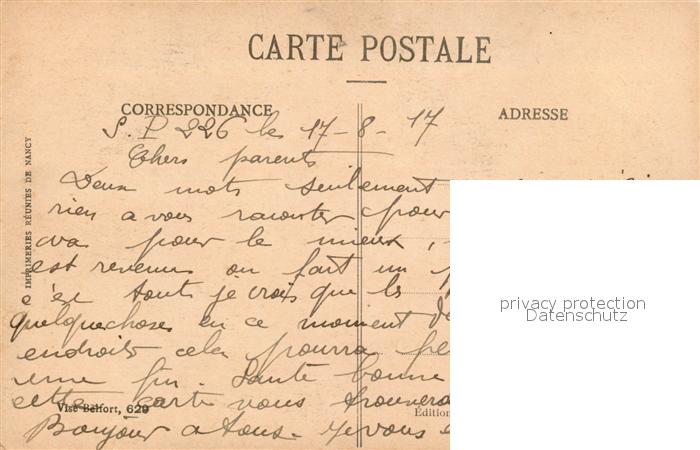 CARTE POSTALE
CORRESPONDANCE
ADRESSE
S. P 226 le 17-8-17
Chers parents
Deux mots seulement
rien a vous raconter pour
va pour le mieux,
est revenu on fait un
c'est tout je crois que les
quelquechose en ce moment
endroits cela pourra
une fin. Santé bonne
cette carte vous trouvera
Bonjour a tous. Je vous
Visé Belfort, 629
Édition
IMPRIMERIES RÉUNIES DE NANCY
privacy protection
Datenschutz